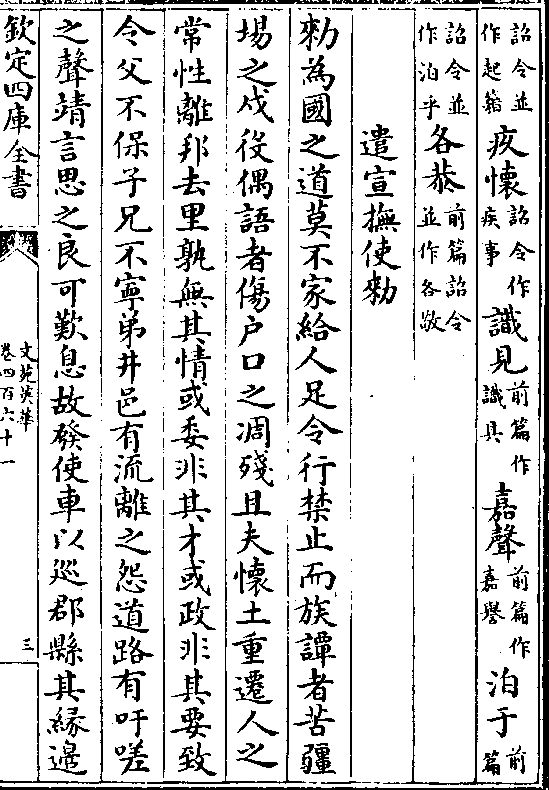 詔令並作起籍疚懷詔令作疾事識見前篇作識具嘉聲前篇作嘉譽洎于前篇
詔令並作洎乎各恭前篇詔令並作各敬
遣宣撫使勑
勑為國之道莫不家給人足令行禁止而族譚者苦疆
埸之戍役偶語者傷户口之凋殘且夫懷土重遷人之
常性離邦去里孰無其情或委非其才或政非其要致
令父不保子兄不寧弟井邑有流離之怨道路有吁嗟
之聲靖言思之良可歎息故發使車以巡郡縣其緣邉
欽定四庫全書
文苑英華
卷四百六十一
三